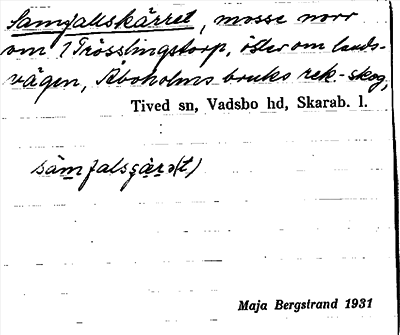 Samfallskärret, mosse norr
om 1 Trösslingstorp, öster om lands-
vägen, Åboholms bruks rek-skog,
Tived sn, Vadsbo hd, Skarab. l.
Maja Bergstrand 1931